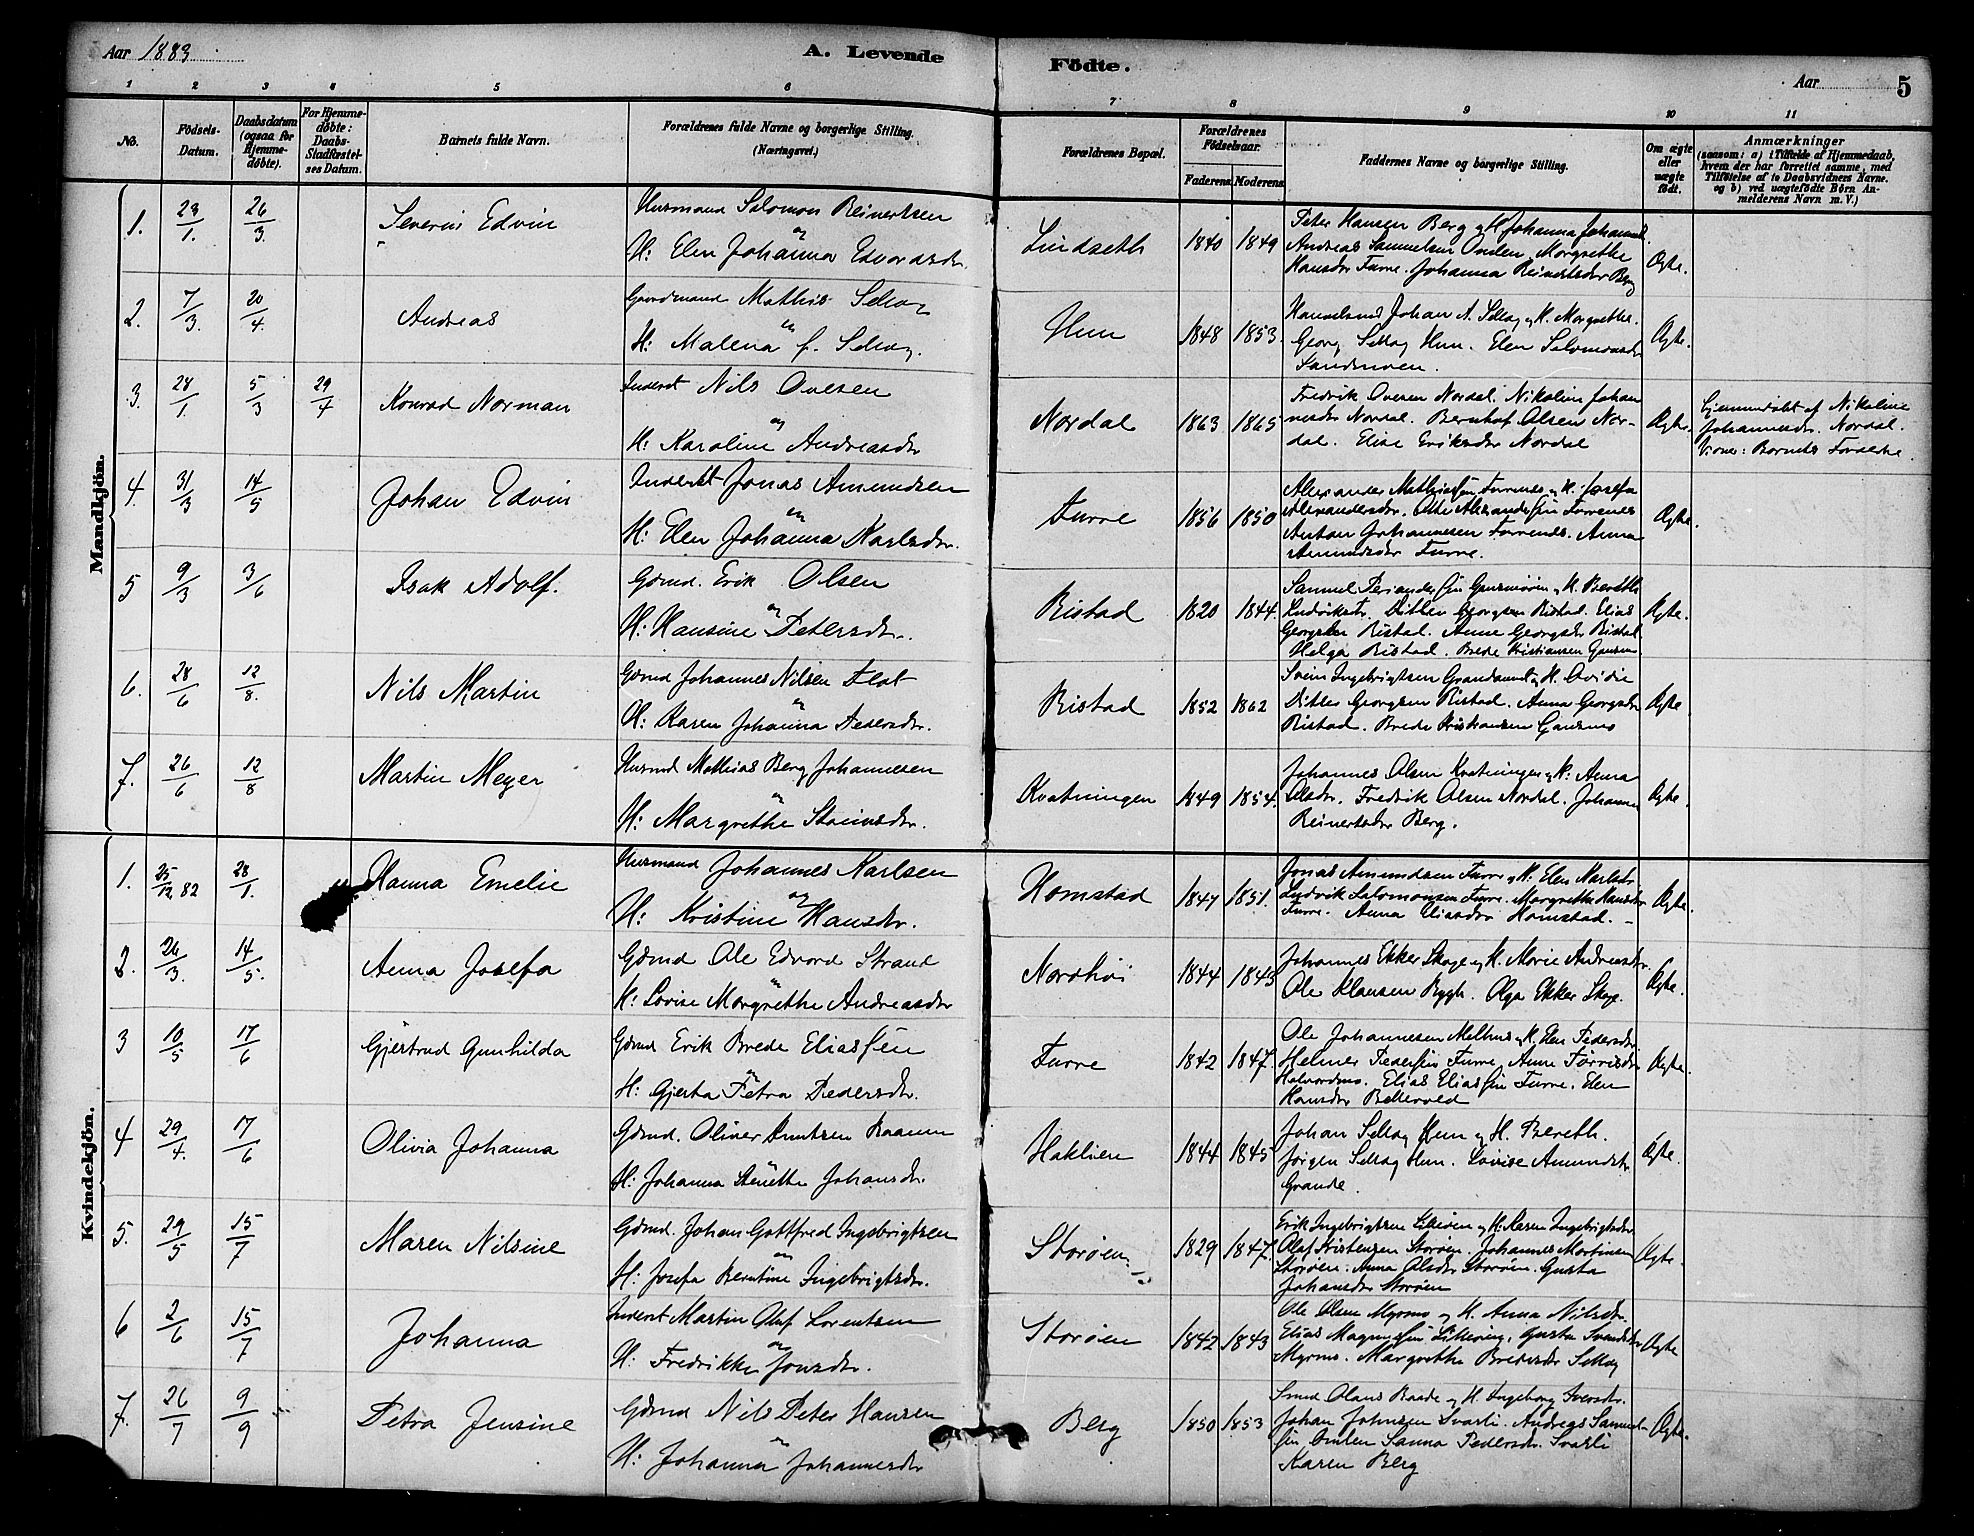 Aar 1883
A. Levende Födte.
Aar
5
1 2 3 4 5 6 7 8 9 10 11
No.
Födsels-Datum.
Daabsdatum (ogsaa for Hjemmedöbte).
For Hjemmedöbte: Daabs-Stadfæstelses Datum.
Barnets fulde Navn.
Forældrenes fulde Navne og borgerlige Stilling. (Næringsvei.)
Forældrenes Bopæl.
Forældrenes Födselsaar.
Faderens Moderens
Faddernes Navne og borgerlige Stilling.
Om ægte eller uægte födt.
Anmærkninger
(saasom: a) i Tilfælde af Hjemmedaab, hvem der har forrettet samme, med Tilföielse af to Daabsvidners Navne. og b) ved uægtefödte Börn Anmelderens Navn m. V.)
Mandkjön.
1. 23/1. 26/3. Severin Edvin
Husmand Salomon Reinertsen
og
H: Elen Johanna Edvardsdr.
Lindseth 1840 1849
Peter Hansen Berg og H. Johanna Johannd.
Andreas Samuelsen Margrethe
Hansdr Furre. Johanna Reinertsdr Berg
Ægte.
2. 7/3. 20/4. Andreas
Gaardmand Mathis Selboy
og
H: Malena f. Selboy.
Hun 1848 1853.
Johan N. Selboy og H. Margrethe.
Georg Selboy Hun. Elen Salomonsdr
Sandmoen.
Ægte.
3. 28/1 5/3 29/4 Konrad Norman
Inderst Nils Ovesen
og
H: Karoline Andreasdr
Nordal 1863 1865
Fredrik Ovesen Nordal. Nikoline Johan
nesdr Nordal. Bernhof Olsen Nor-
dal. Elise Eriksdr Nordal
Ægte.
Hjemmedöbt af Nikoline
Johannesdr. Nordal.
Vidner: Barnets Forældre.
4. 31/3 14/5 Johan Edvin
Inderst Jonas Amundsen
og
H: Elen Johanna Karlsdr.
Furre 1856 1850
Alexander Mathiassen Furrenes og H. Josefa
Alexandersdr. Otte Alexandersen Furrenes
Anton Johannesen Furrenes. Anna
Amundsdr Furre.
Ægte.
5 9/3 3/6 Isak Adolf.
Gdmd. Erik Olsen
og
H: Hansine Petersdr.
Ristad 1820 1844.
Samuel og H. Bereth
Ditlev Georgsen Ristad. Elias
Georgsen Ristad. Anne Georgsdr Ristad
Helga Ristad. Brede Kristiansen
Ægte.
6. 28/6 12/8. Nils Martin
Gdmd Johannes Nilsen Flot
og
H: Karen Johanna Pedersdr.
Ristad 1852 1862
Svein Ingebrigtsen og H. Ovidie
Ditlev Georgsen Ristad. Anna Georgsdr
Ristad. Brede Kristiansen Gansmo
Ægte
7. 26/6 12/8 Martin Meyer
Husmd Mathias Berg Johannesen
og
H: Margrethe Steensdr.
Kvatningen 1849 1854.
Johannes Olsen Kvatningen og H. Anna
Olsdr. Fredrik Olsen Nordal. Johanna
Reinertsdr Berg.
Ægte.
Kvindekjön.
1. 25/12 82 28/1. Hanna Emelie
Husmand Johannes Karlsen
og
H: Kristine Hansdr.
Homstad 1847 1851.
Jonas Amundsen Furre og H: Elen Karlsdr
Ludvik Salomonsen Furre. Margrethe Hansdr
Furre. Anna Eliasdr Homstad.
Ægte.
2. 26/3. 14/5. Anna Josefa
Gdmd Ole Edvard Strand
og
H: Lovise Margrethe Andreasdr
Nordhöi 1844 1843
Johannes Ekker Skage og H. Marie Andreasdr.
Ole Klausen Rygh. Olga Ekker Skage.
Ægte.
3 10/5 17/6 Gjertrud Gunhilda
Gdmd Erik Brede Eliassen
og
H: Gjerta Petra Pedersdr.
Furre 1842 1847.
Ole Johannesen Melhus og H. Elen Pedersdr
Helmer Pedersen Furre, Anne
Halvordmo. Elias Eliassen Furre. Elen
Hansdr
Ægte.
4 29/4. 17/6 Olivia Johanna
Gdmd. Oliver Knutsen Raanm
H: Johanna Johansdr.
Haklien 1844 1845
Johan Selboy Hun og H. Bereth.
Jörgen Selboy Hun. Lovise Amundsdr.
Grande.
Ægte.
5. 29/5 15/7 Maren Nilsine
Gdmd. Johan Gottfred Ingebrigtsen
og
H: Josefa Berntine Ingebrigtsdr.
Storöen 1829 1847.
Erik Ingebrigtsen og H. Karen Ingebrigtsdr
Olaf Kristensen Storöen. Johannes Martinsen
Storöen. Anna Olsdr Storöen. Gusta
Johansdr Storöen
Ægte.
6 2/6 15/7 Johanna
Inderst Martin Olaf Lorentsen
og
H: Fredrikke Jonsdr.
Storöen 1842 1843
Ole Olsen Myrmo og H. Anna Nilsdr.
Elias Magnussen Gusta Svendsdr
Myrmo. Margrethe Bredesdr Selboy
Ægte
7. 26/7 9/9 Petra Jensine
Gdmd Nils Peter Hansen
og
H: Johanna Johannesdr
Berg 1850 1853
Smed Olaus Baade og H. Ingeborg Iversdr.
Johan Johnsen Svarli. Andreas Samuel-
sen Sanna Pedersdr. Svarli
Karen Berg
Ægte.